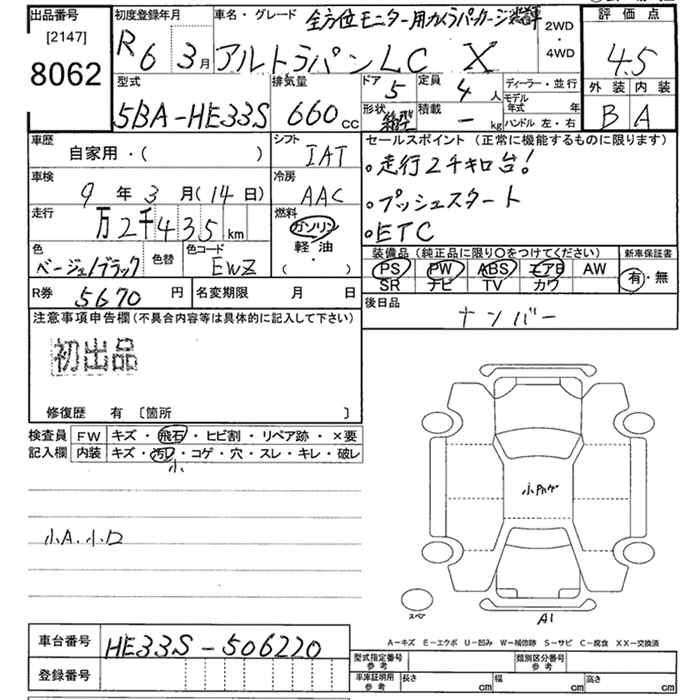 出品番号
[2147]
8062
初度登録年月
R6 3月
車名・グレード
全方位モニター用カメラパッケージ装着車
アルトラパンLC X
2WD
・
4WD
評価点
4.5
外装 内装
B A
型式
5BA-HE33S
排気量
660cc
ドア
5
定員
4人
形状
積載
- kg
ディーラー・並行
モデル年式 年
ハンドル 左・右
車歴
自家用・( )
シフト
IAT
車検
9年3月(14日)
冷房
AAC
走行
万2千435km
燃料
ガソリン
軽・油
( )
色
ベージュ/ブラック
色替
色コード
EWZ
R券
5670円
名変期限 月 日
セールスポイント (正常に機能するものに限ります)
・走行2千キロ台!
・プッシュスタート
・ETC
装備品 (純正品に限り○をつけてください)
PS PW ABS エアB AW
SR ナビ TV カワ
新車保証書
有・無
後日品
ナンバー
注意事項申告欄 (不具合内容等は具体的に記入して下さい)
初出品
修復歴 有 〔箇所 〕
検査員
記入欄
FW キズ・飛石・ヒビ割・リペア跡・×要
内装 キズ・汚レ・コゲ・穴・スレ・キレ・破レ
小
小A.小ロ
スペア
A1
A-キズ E-エクボ U-凹み W-補修跡 S-サビ C-腐食 XX-交換済
車台番号
HE33S-506220
登録番号
型式指定番号
参考
類別区分番号
参考
車庫証明用
参考
長さ cm
幅 cm
高さ cm